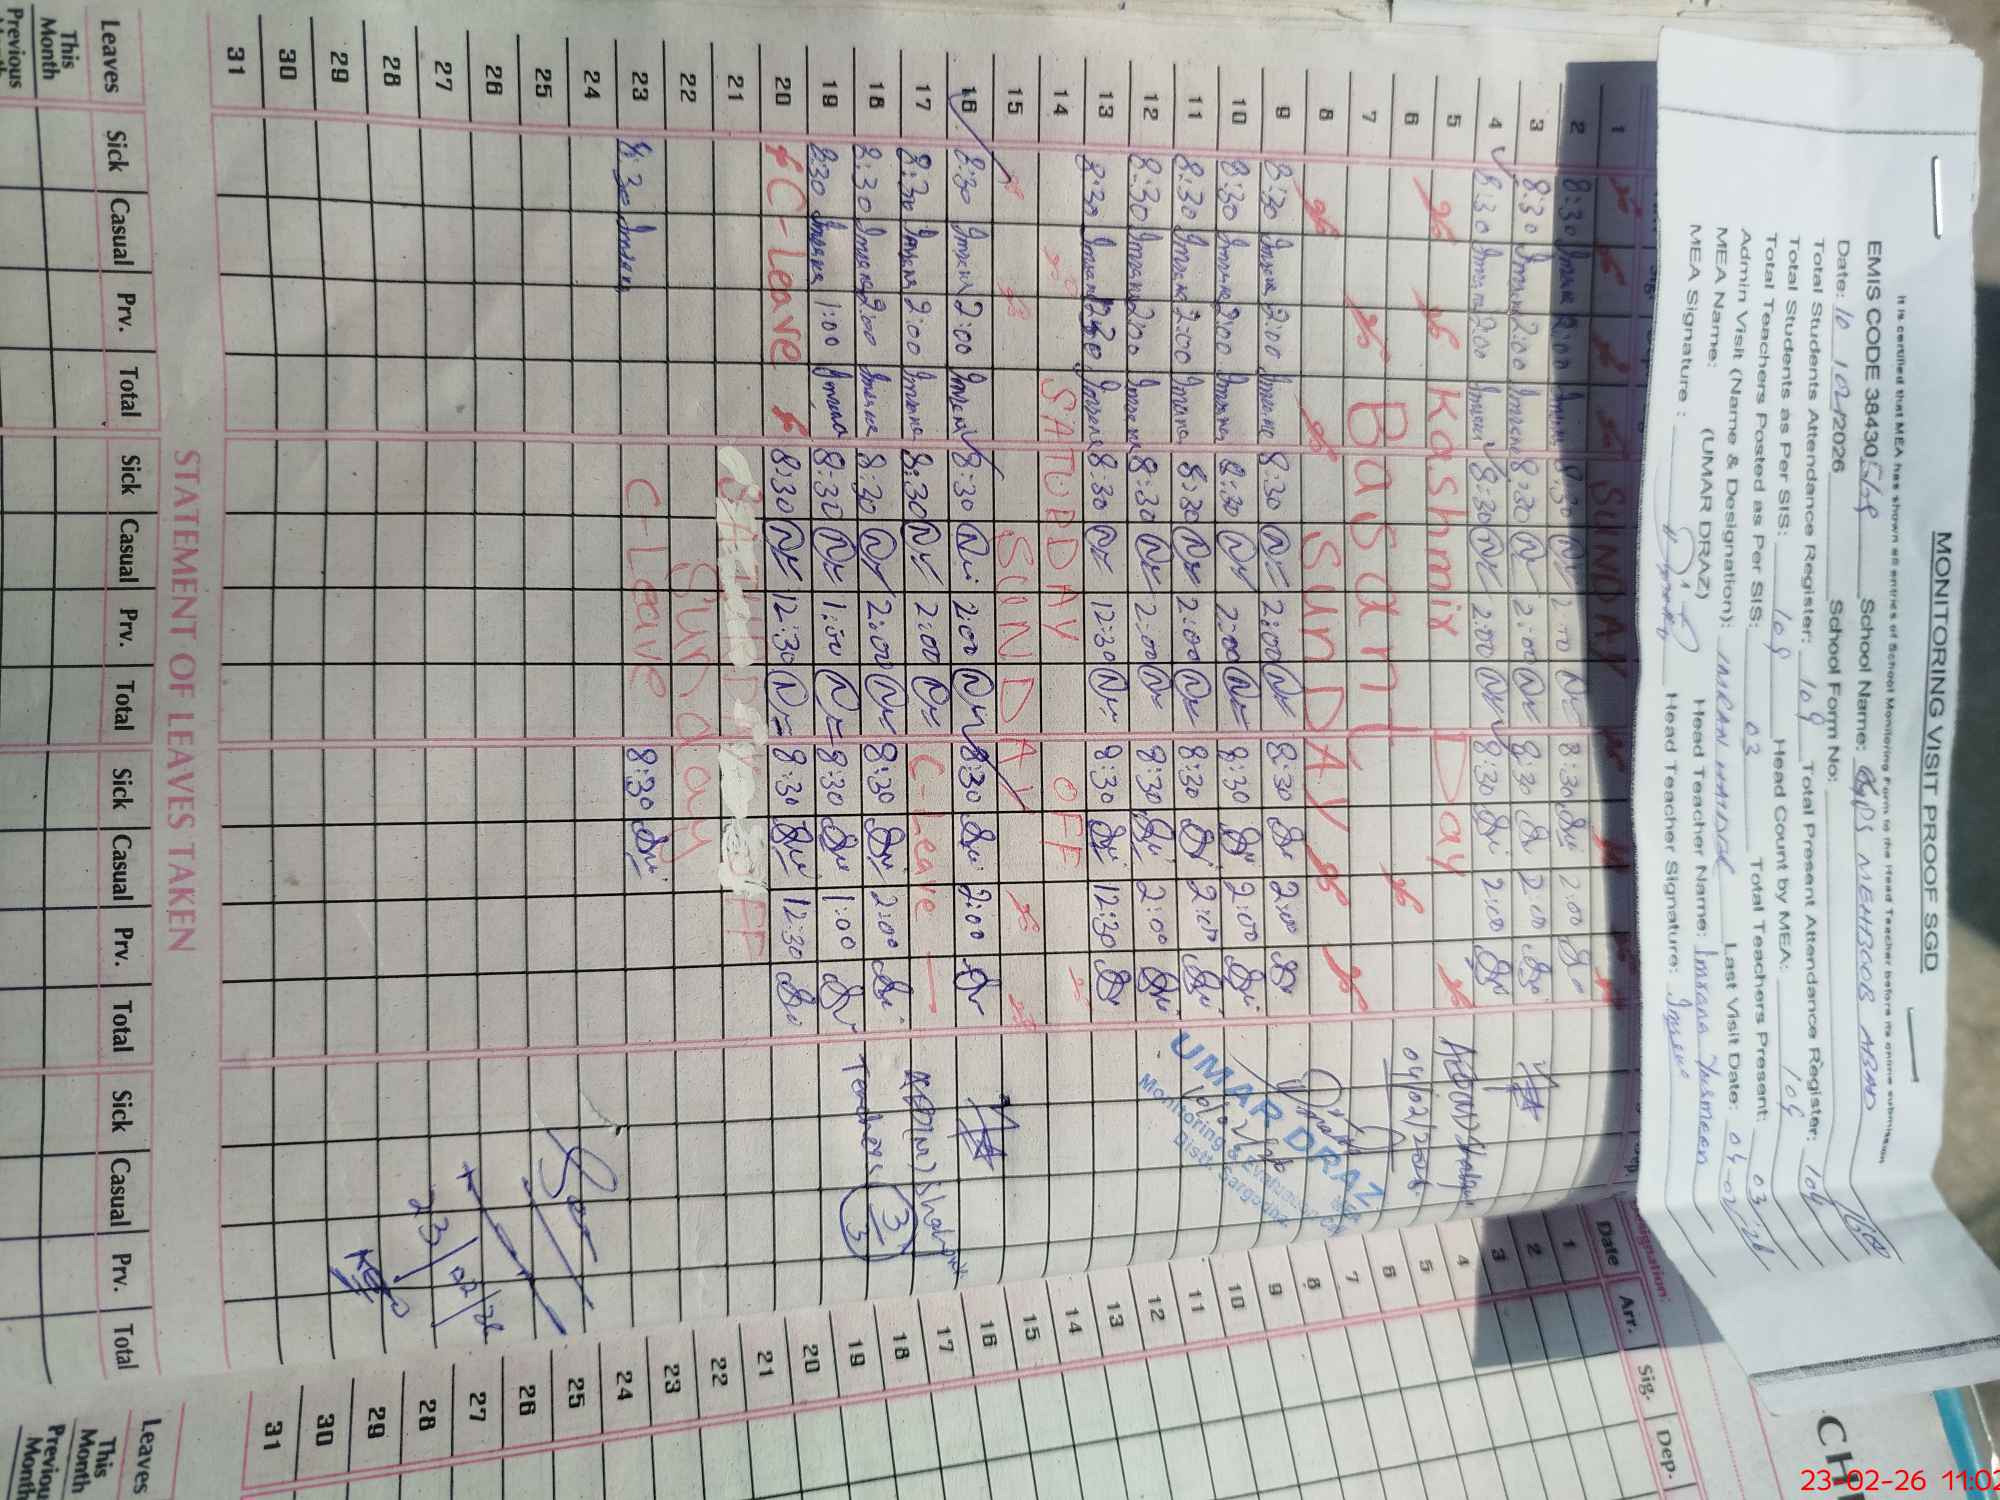 MONITORING VISIT PROOF SGD
It is certified that MEA has shown all entries of School Monitoring Form to the Head Teacher before its online submission
EMIS CODE 38430 School Name: MEHBOOB ABAD
Date: 10 / 02 / 2026 School Form No:
Total Students Attendance Register: 109 Total Present Attendance Register: 104
Total Students as Per SIS: 109 Head Count by MEA: 104
Total Teachers Posted as Per SIS: 03 Total Teachers Present: 03
Admin Visit (Name & Designation): IMRAN HAIDER Last Visit Date: 04-02/26
MEA Name: (UMAR DRAZ) Head Teacher Name: Imrana Yasmeen
MEA Signature : Head Teacher Signature:
1 SUNDAY
2 8:30 Imrana 2:00 Imrana 8:30 2:00 8:30 2:00
3 8:30 Imrana 2:00 Imrana 8:30 2:00 8:30 2:00
4 8:30 Imrana 2:00 Imrana 8:30 2:00 8:30 2:00
5 Kashmir Day
6 Basant
7
8 SunDAY
9 8:30 Imrana 2:00 Imrana 8:30 2:00 8:30 2:00
10 8:30 Imrana 2:00 Imrana 8:30 2:00 8:30 2:00
11 8:30 Imrana 2:00 Imrana 8:30 2:00 8:30 2:00
12 8:30 Imrana 2:00 Imrana 8:30 2:00 8:30 2:00
13 8:30 Imrana 12:30 Imrana 8:30 12:30 8:30 12:30
14 SATURDAY OFF
15 SUNDAY
16 8:30 Imrana 2:00 Imrana 8:30 2:00 8:30 2:00
17 8:30 Imrana 2:00 Imrana 8:30 2:00 C-Leave
18 8:30 Imrana 2:00 Imrana 8:30 2:00 8:30 2:00
19 8:30 Imrana 1:00 Imrana 8:30 1:00 8:30 1:00
20 C-Leave 8:30 12:30 8:30 12:30
21 OFF
22 Sunday
23 8:30 Imrana C-Leave 8:30
24
25
26
27
28
29
30
31
04/02/2026
UMAR DRAZ
Monitoring & Evaluation
Distt. Sargodha
Teachers 3/3
23/02/26
STATEMENT OF LEAVES TAKEN
Leaves Sick Casual Prv. Total Sick Casual Prv. Total Sick Casual Prv. Total Sick Casual Prv. Total
This Month
Previous
Designation:
Date Arr. Sig. Dep.
1
2
3
4
5
6
7
8
9
10
11
12
13
14
15
16
17
18
19
20
21
22
23
24
25
26
27
28
29
30
31
Leaves
This Month
Previous
Month
23-02-26 11:02